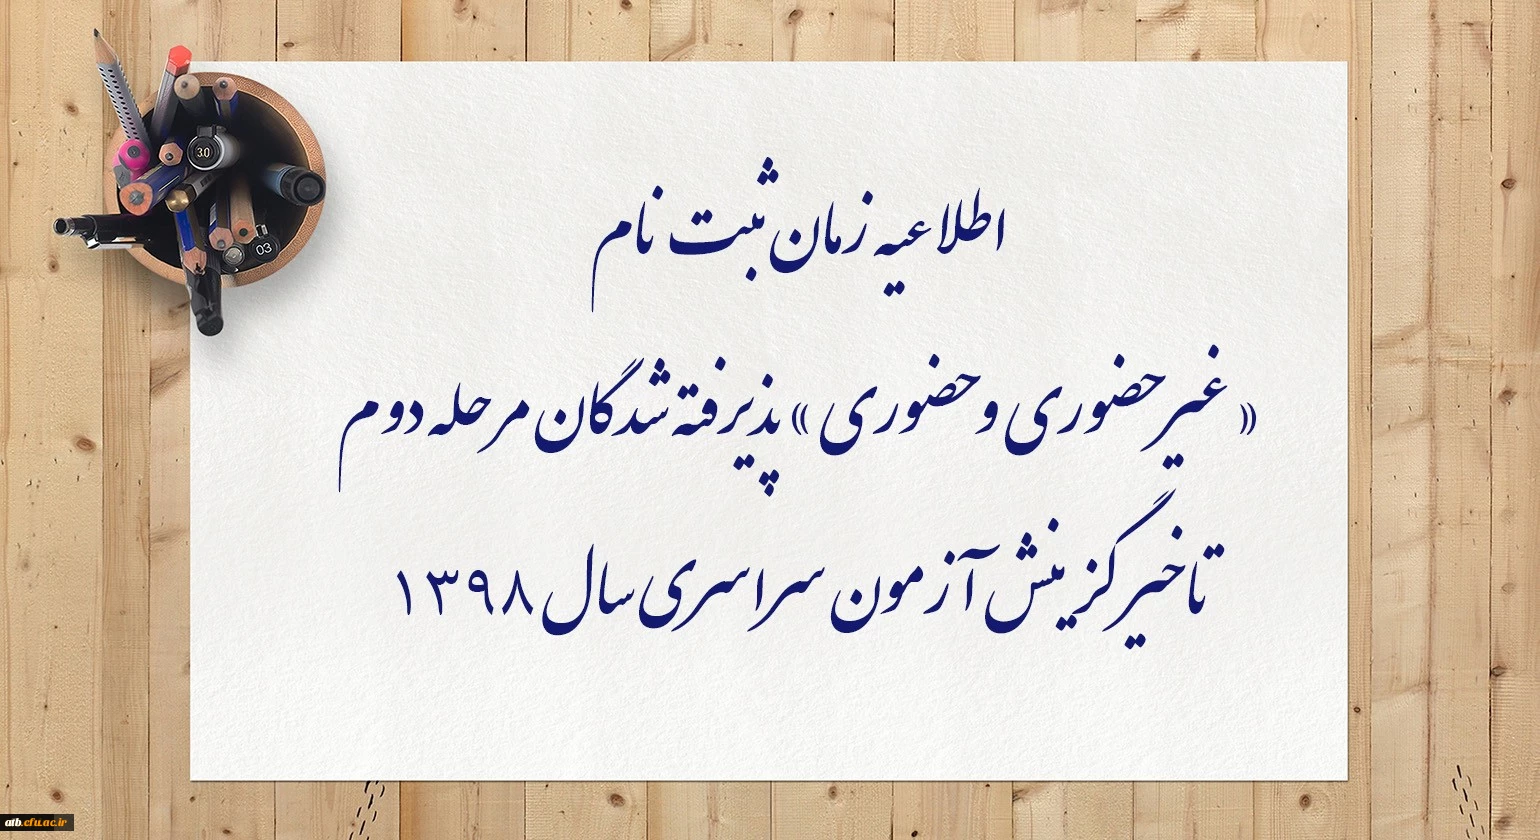 اطلاعیه زمان ثبت نام
« غیرحضوری و حضوری » پذیرفته شدگان مرحله دوم
تاخیر گزینش آزمون سراسری سال ۱۳۹۸
3.0
03
atb.cfu.ac.ir